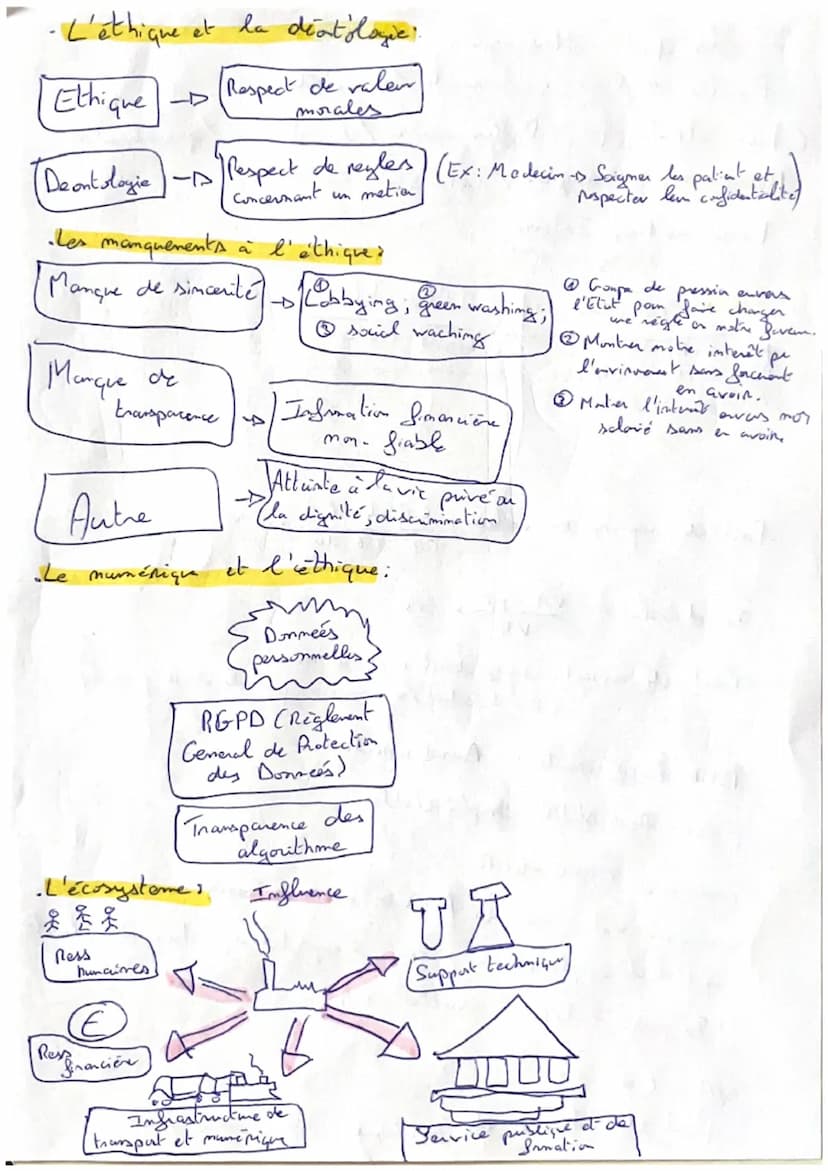 - L'éthique et la déontologie:
Ethique -> Respect de valeur
morales
Deontologie -> Respect de regles
concernant un metier
(Ex: Medecin -> Soigner les patient et
respecter leur confidentialité)
. Les manquements à l'éthique:
Manque de sincerité -> ① Lobbying; ② green washing;
③ social waching
① Groupe de pression envers
l'Etat pour faire changer
une règle en notre faveur.
② Montrer notre interêt pr
l'environnement sans forcement
en avoir.
③ Montrer l'interêt envers mon
salarié sans en avoir.
Manque de
transparence -> Information financière
non-fiable
Autre -> Atteinte à la vie privé ou
la dignité, discrimination
. Le numérique et l'éthique:
Données
personnelles
RGPD (Règlement
General de Protection
des Données)
Transparence des
algorithme
. L'écosysteme:
Influence
Ress
humaines
Support technique
€
Ress
financière
Infrastructure de
transport et numérique
Service publique et de
formation